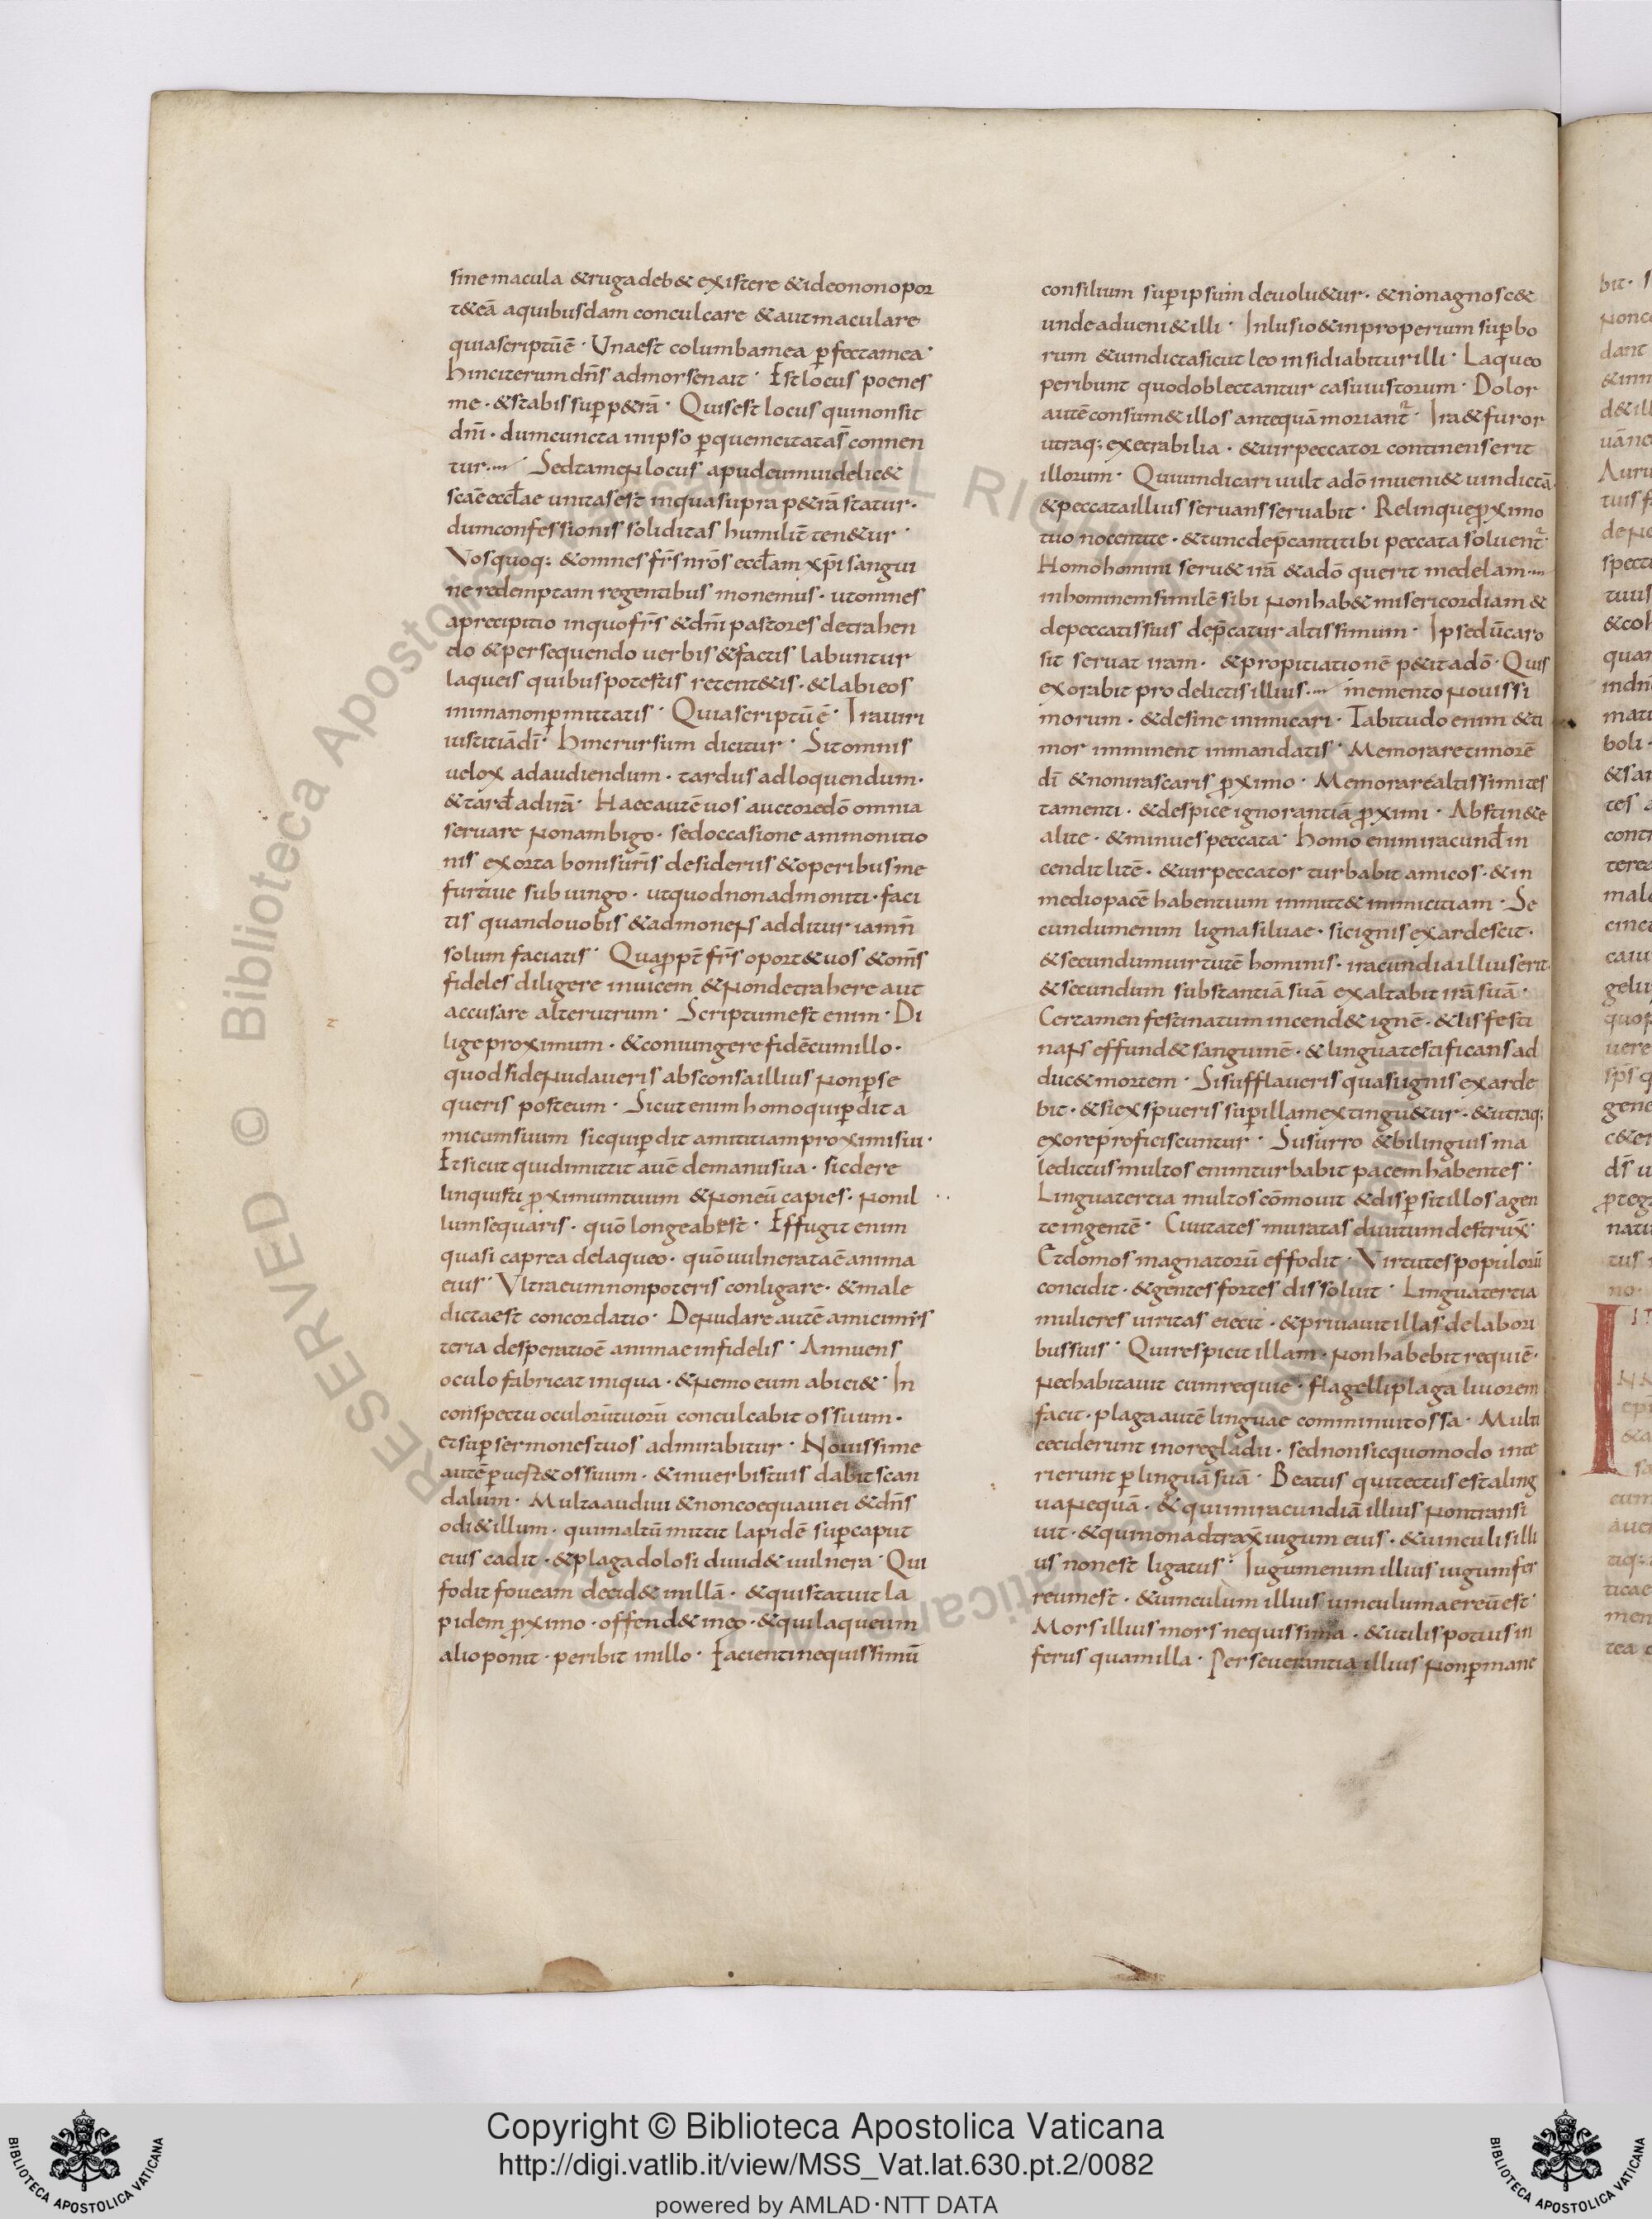 sine macula & ruga deb& existere & ideo non opor
t& eā a quibusdam conculcare & aut maculare
quia scriptū ē · Una est columba mea p̄fecta mea ·
hinc iterum dn̄s ad morsen ait · Est locus poenes
me · & stabis sup̄ p&rā · Quis est locus qui non sit
dn̄i · dum cuncta in ipso p̄ quem citatas̄ connen
tur · Sed tamen locus apud eum uidelic&
scāe eccƚae unitas est in qua supra p&rā statur ·
dum confessionis soliditas humilit̄ ten&ur ·
Vos quoq; & omnes fr̄s nr̄os eccƚam xp̄i sangui
ne redemptam regentibus monemus · ut omnes
a precipitio in quo fr̄s & dn̄i pastores detrahen
do & persequendo uerbis & factis labuntur
laqueis quibus potestis retent&is · & labi eos
in ima non p̄mittatis · Quia scriptū ē · Ira uiri
iustitiā dī · hinc rursum dicitur · Sit omnis
uelox ad audiendum · tardus ad loquendum ·
& tard̄ ad irā · Haec autē uos auctore dō omnia
seruare non ambigo · sed occasione ammonitio
nis exorta bonis ur̄is desideriis & operibus me
furtiue subiungo · ut quod non admoniti · faci
tis quando uobis & admonens additur iam n̄
solum faciatis · Quapp̄t fr̄s oport& uos & om̄s
fideles diligere inuicem & non detrahere aut
accusare alterutrum · Scriptum est enim · Di
lige proximum · & coniungere fidē cum illo ·
quod si denudaueris absconsa illius non p̄se
queris post eum · Sicut enim homo qui p̄dit a
micum suum sic qui p̄dit amititiam proximi sui ·
Et sicut qui dimittit auē de manu sua · sic dere
linquisti p̄ximum tuum & non eū capies · non il
lum sequaris · quō longe abest · Effugit enim
quasi caprea de laqueo · quō uulnerata ē anima
eius · Ultra eum non poteris conligare · & male
dicta est concordatio · Denudare autē amici mis
teria desperatioē animae infidelis · Annuens
oculo fabricat iniqua · & nemo eum abici& · In
conspectu oculorū tuorū conculcabit os suum ·
et sup̄ sermones tuos admirabitur · Nouissime
autē p̄uert& os suum · & in uerbis tuis dabit scan
dalum · Multa audiui & non coequaui ei & dn̄s
odi& illum · qui in altū mittit lapidē sup̄ caput
eius cadit · & plaga dolosi diuid& uulnera · Qui
fodit foueam decid& in illā · & qui statuit la
pidem p̄ximo · offend& in eo · & qui laqueum
alio ponit · peribit in illo · Facienti nequissimū
consilium sup̄ ipsum deuolu&ur · & non agnosc&
unde adueni& illi · Inlusio & inproperium sup̄bo
rum & uindicta sicut leo insidiabitur illi · Laqueo
peribunt quod oblectantur casu iustorum · Dolor
autē consum& illos antequā moriant̄ · Ira & furor
utraq; execrabilia · & uir peccator continens erit
illorum · Qui uindicari uult a dō inueni& uindictā
& peccata illius seruans seruabit · Relinque p̄ximo
tuo nocentite · & tunc dep̄canti tibi peccata soluent̄ ·
Homo homini seru& irā & a dō querit medelam ·
in hominem similē sibi non hab& misericordiam &
de peccatis suis dep̄catur altissimum · Ipse dū caro
sit seruat iram · & propitiationē p&it a dō · Quis
exorabit pro delictis illius · in emento nouissi
morum · & desine inimicari · Tabitudo enim & ti
mor imminent in mandatis · Memorare timorē
dī & non irascaris p̄ximo · Memorare altissimi tes
tamenti · & despice ignorantiā p̄ximi · Abstin& e
alite · & minues peccata · Homo enim iracund̄ in
cendit litē · & uir peccator turbabit amicos · & in
medio pacē habentium inmitt& inimicitiam · Se
cundum enim ligna siluae · sic ignis exardescit ·
& secundum uirtutē hominis · iracundia illius erit ·
& secundum substantiā suā exaltabit irā suā ·
Certamen festinatum incend& ignē · & lis festi
nans effund& sanguinē · & lingua testificans ad
duc& mortem · Si sufflaueris quasi ignis exarde
bit · & si exspueris sup̄ illam extingu&ur · & utraq;
ex ore proficiscuntur · Susurro & bilinguis ma
ledictus multos enim turbabit pacem habentes ·
Lingua tertia multos cōmouit & disp̄sit illos a gen
te in gentē · Ciuitates muratas diuitum destrux̄ ·
Et domos magnatorū effodit · Virtutes populorū
concidit · & gentes fortes dissoluit · Lingua tertia
mulieres uiritas eiecit · & priuauit illas de labori
bus suis · Qui respicit illam · non habebit requiē ·
Nec habitauit cum requie · flagelli plaga liuorem
facit · plaga autē linguae comminuit ossa · Multi
ceciderunt in ore gladii · sed non sic quomodo inte
rierunt p̄ linguā suā · Beatus qui tectus est a ling
ua nequā · & qui in iracundiā illius non transi
uit · & qui non adtrax̄ iugum eius · & uinculis illi
us non est ligatus · Iugum enim illius iugum fer
reum est · & uinculum illius uinculum aereū est ·
Mors illius mors nequissima · & utilis potius in
ferus quam illa · Perseuerantia illius non p̄mane
Copyright © Biblioteca Apostolica Vaticana
http://digi.vatlib.it/view/MSS_Vat.lat.630.pt.2/0082
powered by AMLAD·NTT DATA